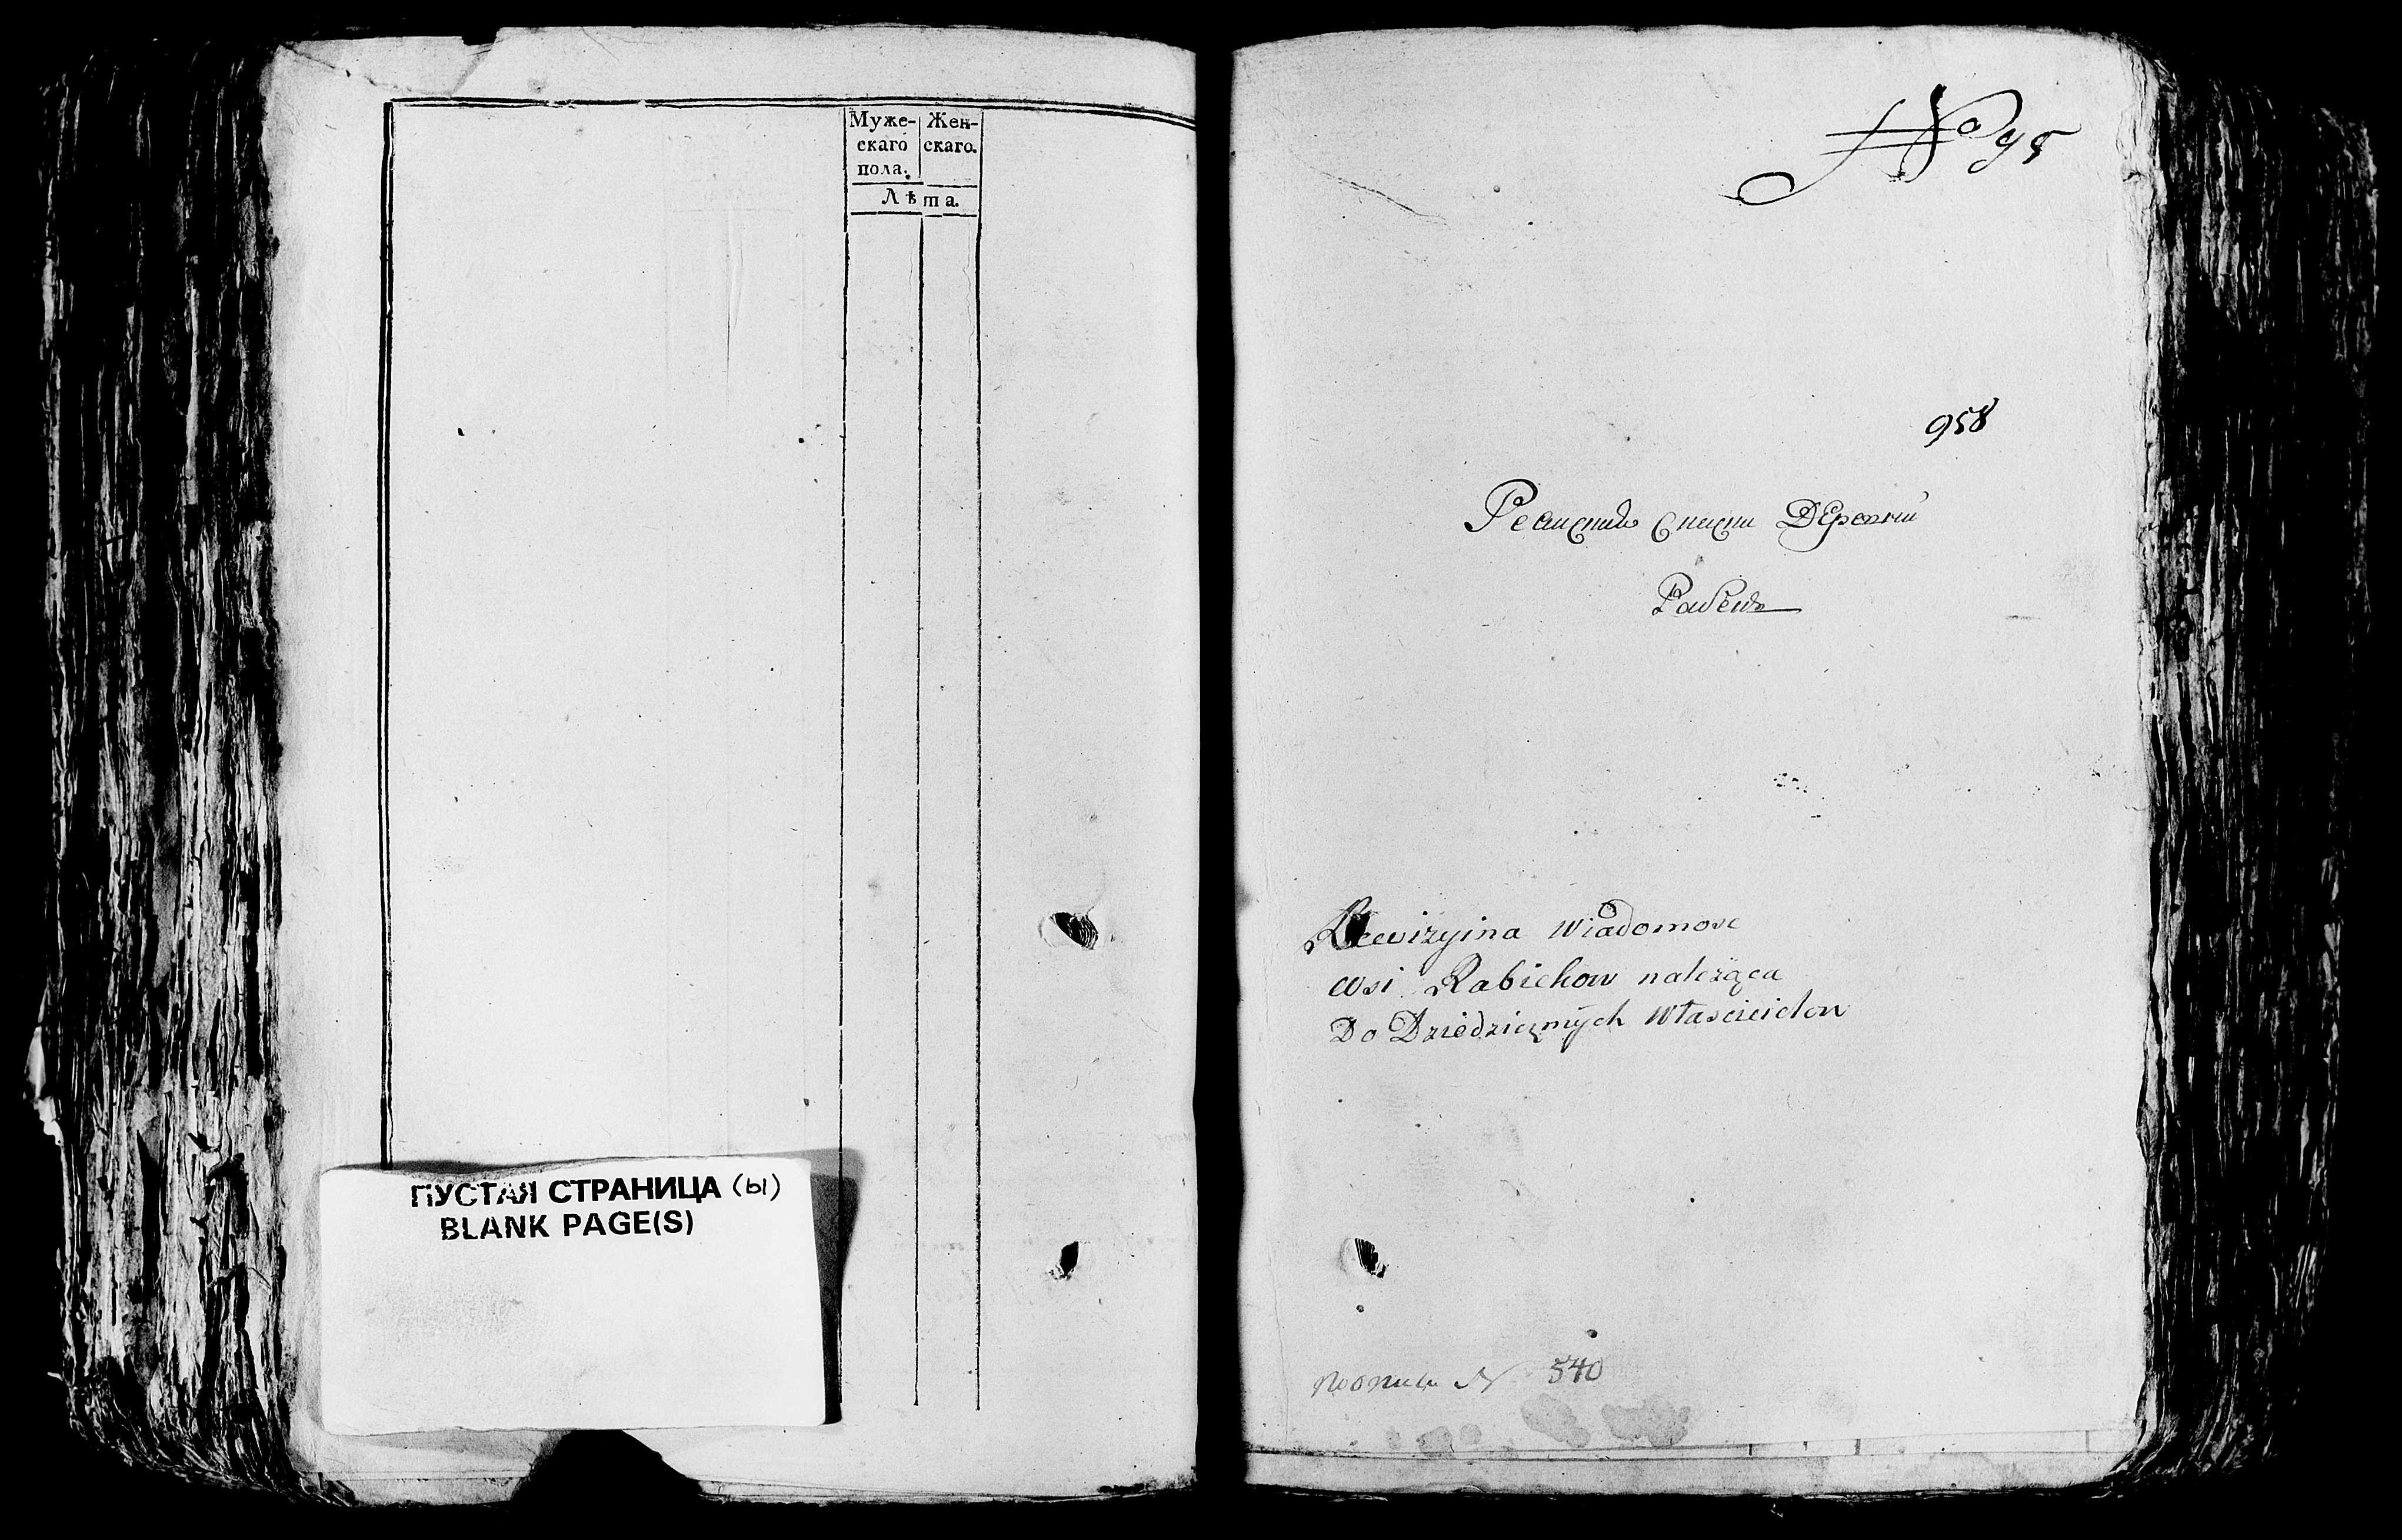 Муже-
скаго
пола.
Жен-
скаго.
Лѣта.
ПУСТАЯ СТРАНИЦА (Ы)
BLANK PAGE(S)
№ 95
958
Деревни
Rewizyina Wiadomosc
Wsi Rabiehow należąca
Do Dziedzicznych Włascicielow
№ 540